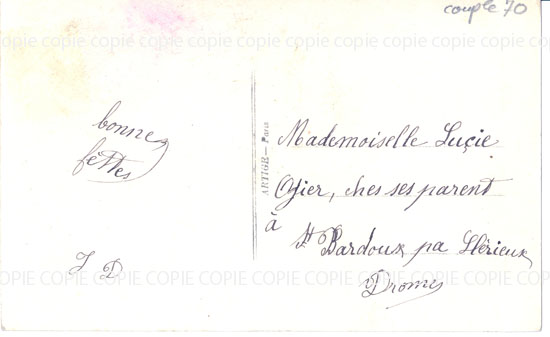 couple 70
COPIE COPIE COPIE COPIE COPIE COPIE COPIE COPIE COPIE COPIE
bonnes
fêttes
J D
ARTIGE — Paris
Mademoiselle Luçie
Ogier, ches ses parent
à
St Bardoux pa Hérieux
Drome
COPIE COPIE COPIE COPIE COPIE COPIE COPIE COPIE COPIE COPIE